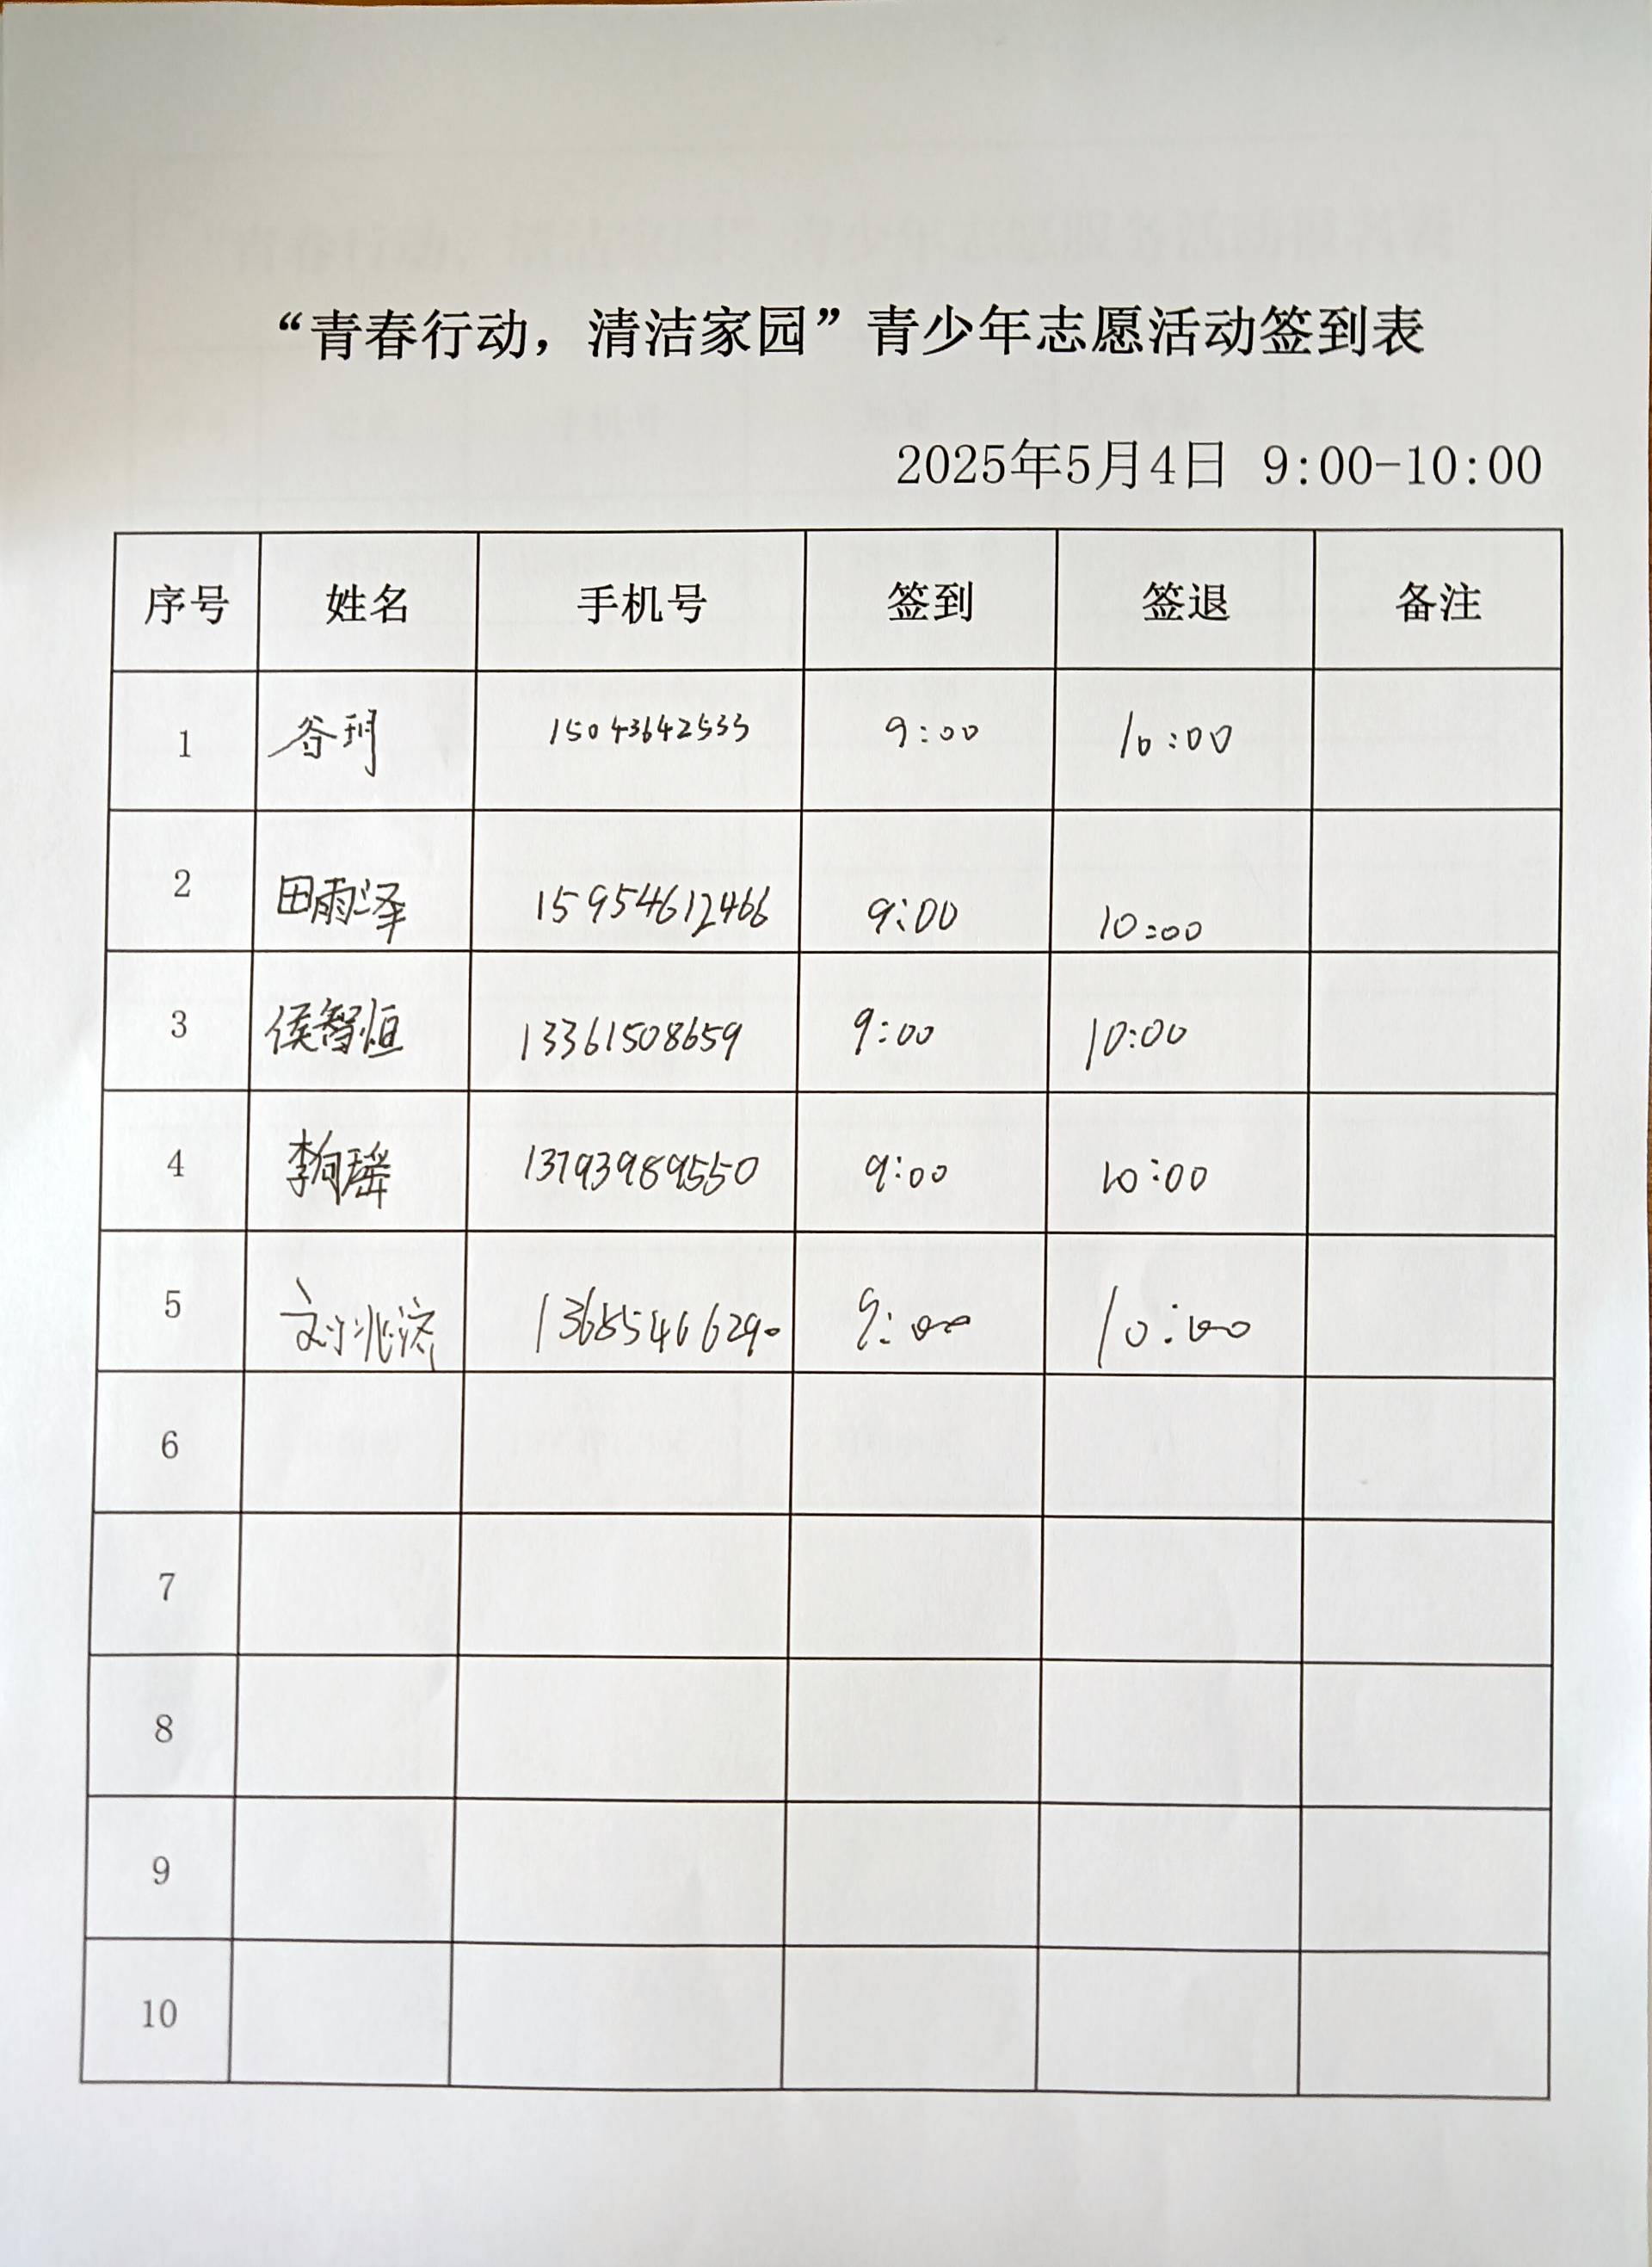 “青春行动，清洁家园”青少年志愿活动签到表
2025年5月4日 9:00-10:00
序号 姓名 手机号 签到 签退 备注
1 谷玥 15043642533 9:00 10:00
2 田雨泽 15954612466 9:00 10:00
3 侯智恒 13361508659 9:00 10:00
4 李向瑶 13793989550 9:00 10:00
5 刘兆济 13685466290 9:00 10:00
6
7
8
9
10